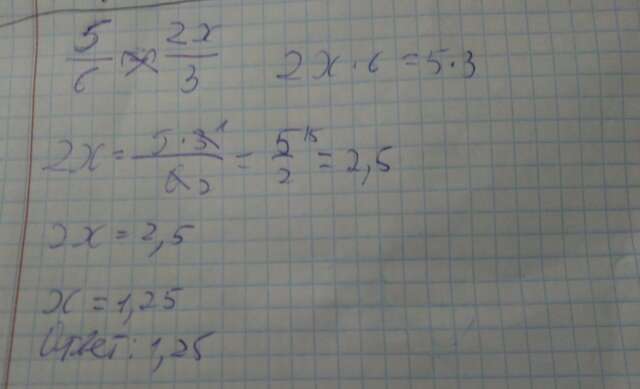 5/6 = 2x/3 2x · 6 = 5 · 3
2x = 5 · 3 1 / 6 2 = 5/2 = 2,5
2x = 2,5
x = 1,25
Ответ: 1,25